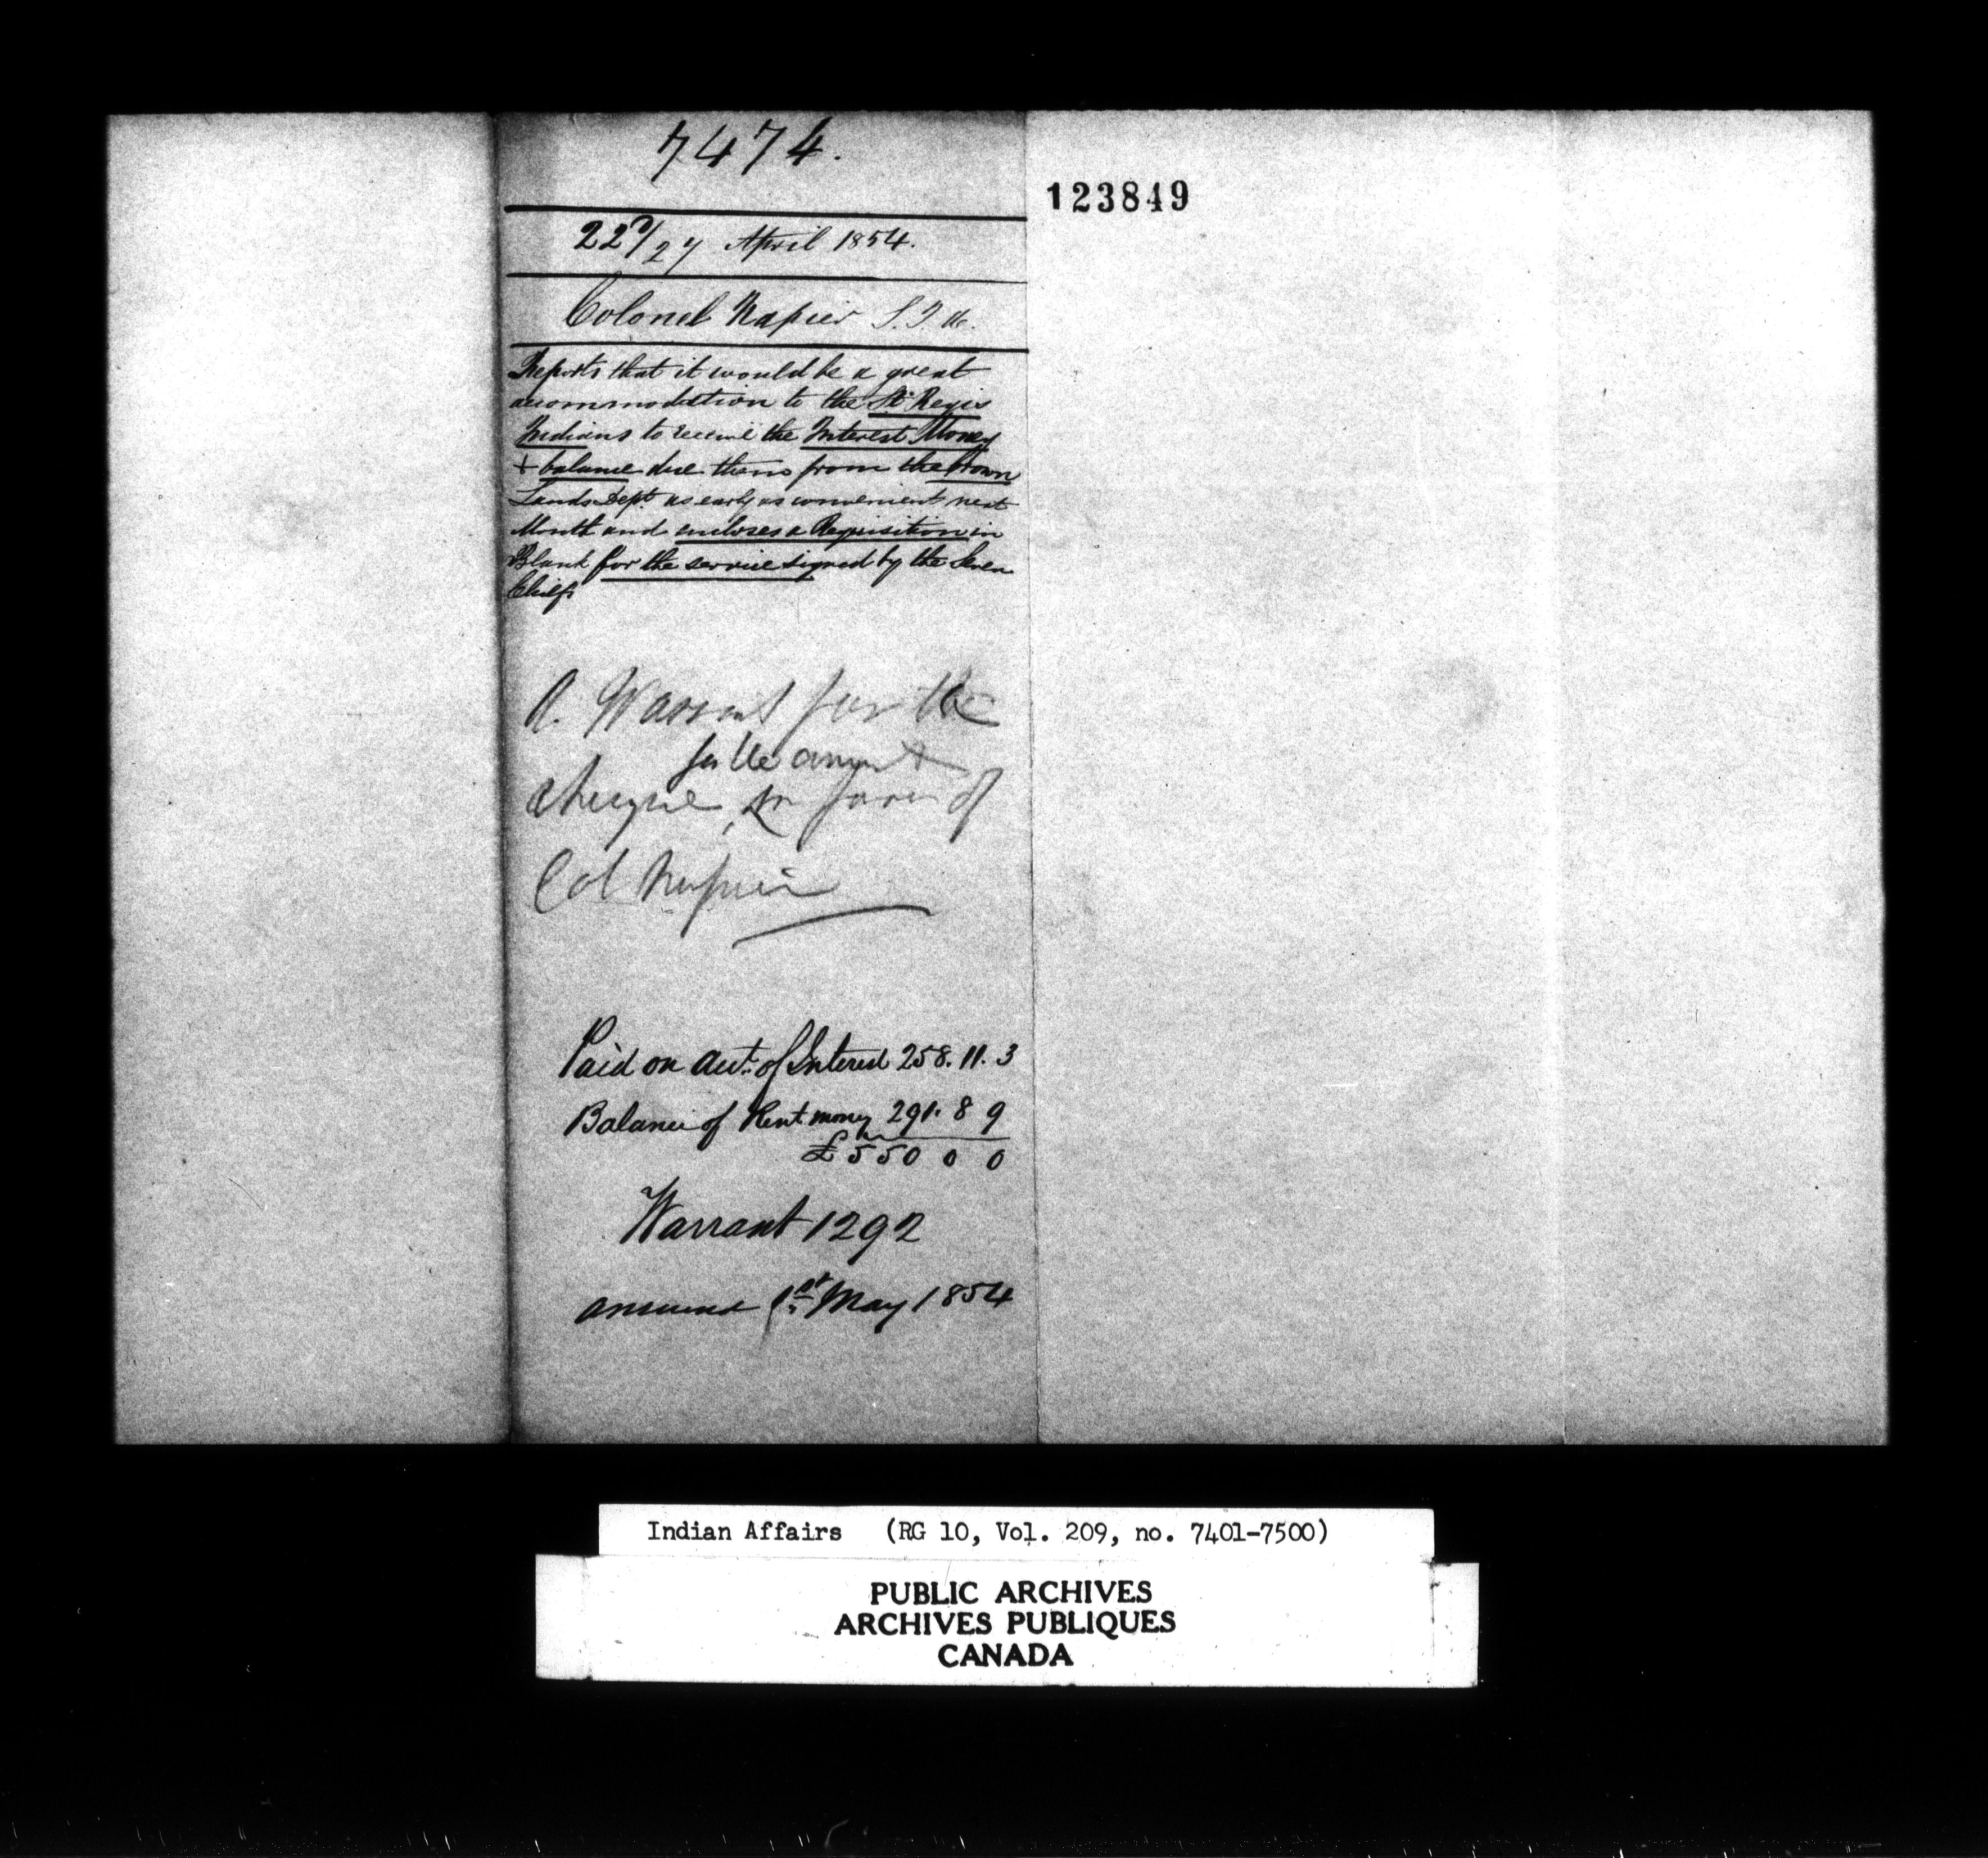 7474.
123849
22d/27 April 1854.
Colonel Napier S.I.A.
Reports that it would be a great
accommodation to the St. Regis
Indians to receive the Interest Money
+ balance due them from the Crown
Lands Dept. as early as convenient next
Month and encloses a Requisition in
Blank for the service signed by the Seven
Chiefs
A. Warrant for the
for the amount
cheque, in favor of
Col Napier
Paid on acct. of Interest 258. 11. 3
Balance of Rent money 291. 8 9
£550 0 0
Warrant 1292
answered 1st May 1854
Indian Affairs (RG 10, Vol. 209, no. 7401-7500)
PUBLIC ARCHIVES
ARCHIVES PUBLIQUES
CANADA